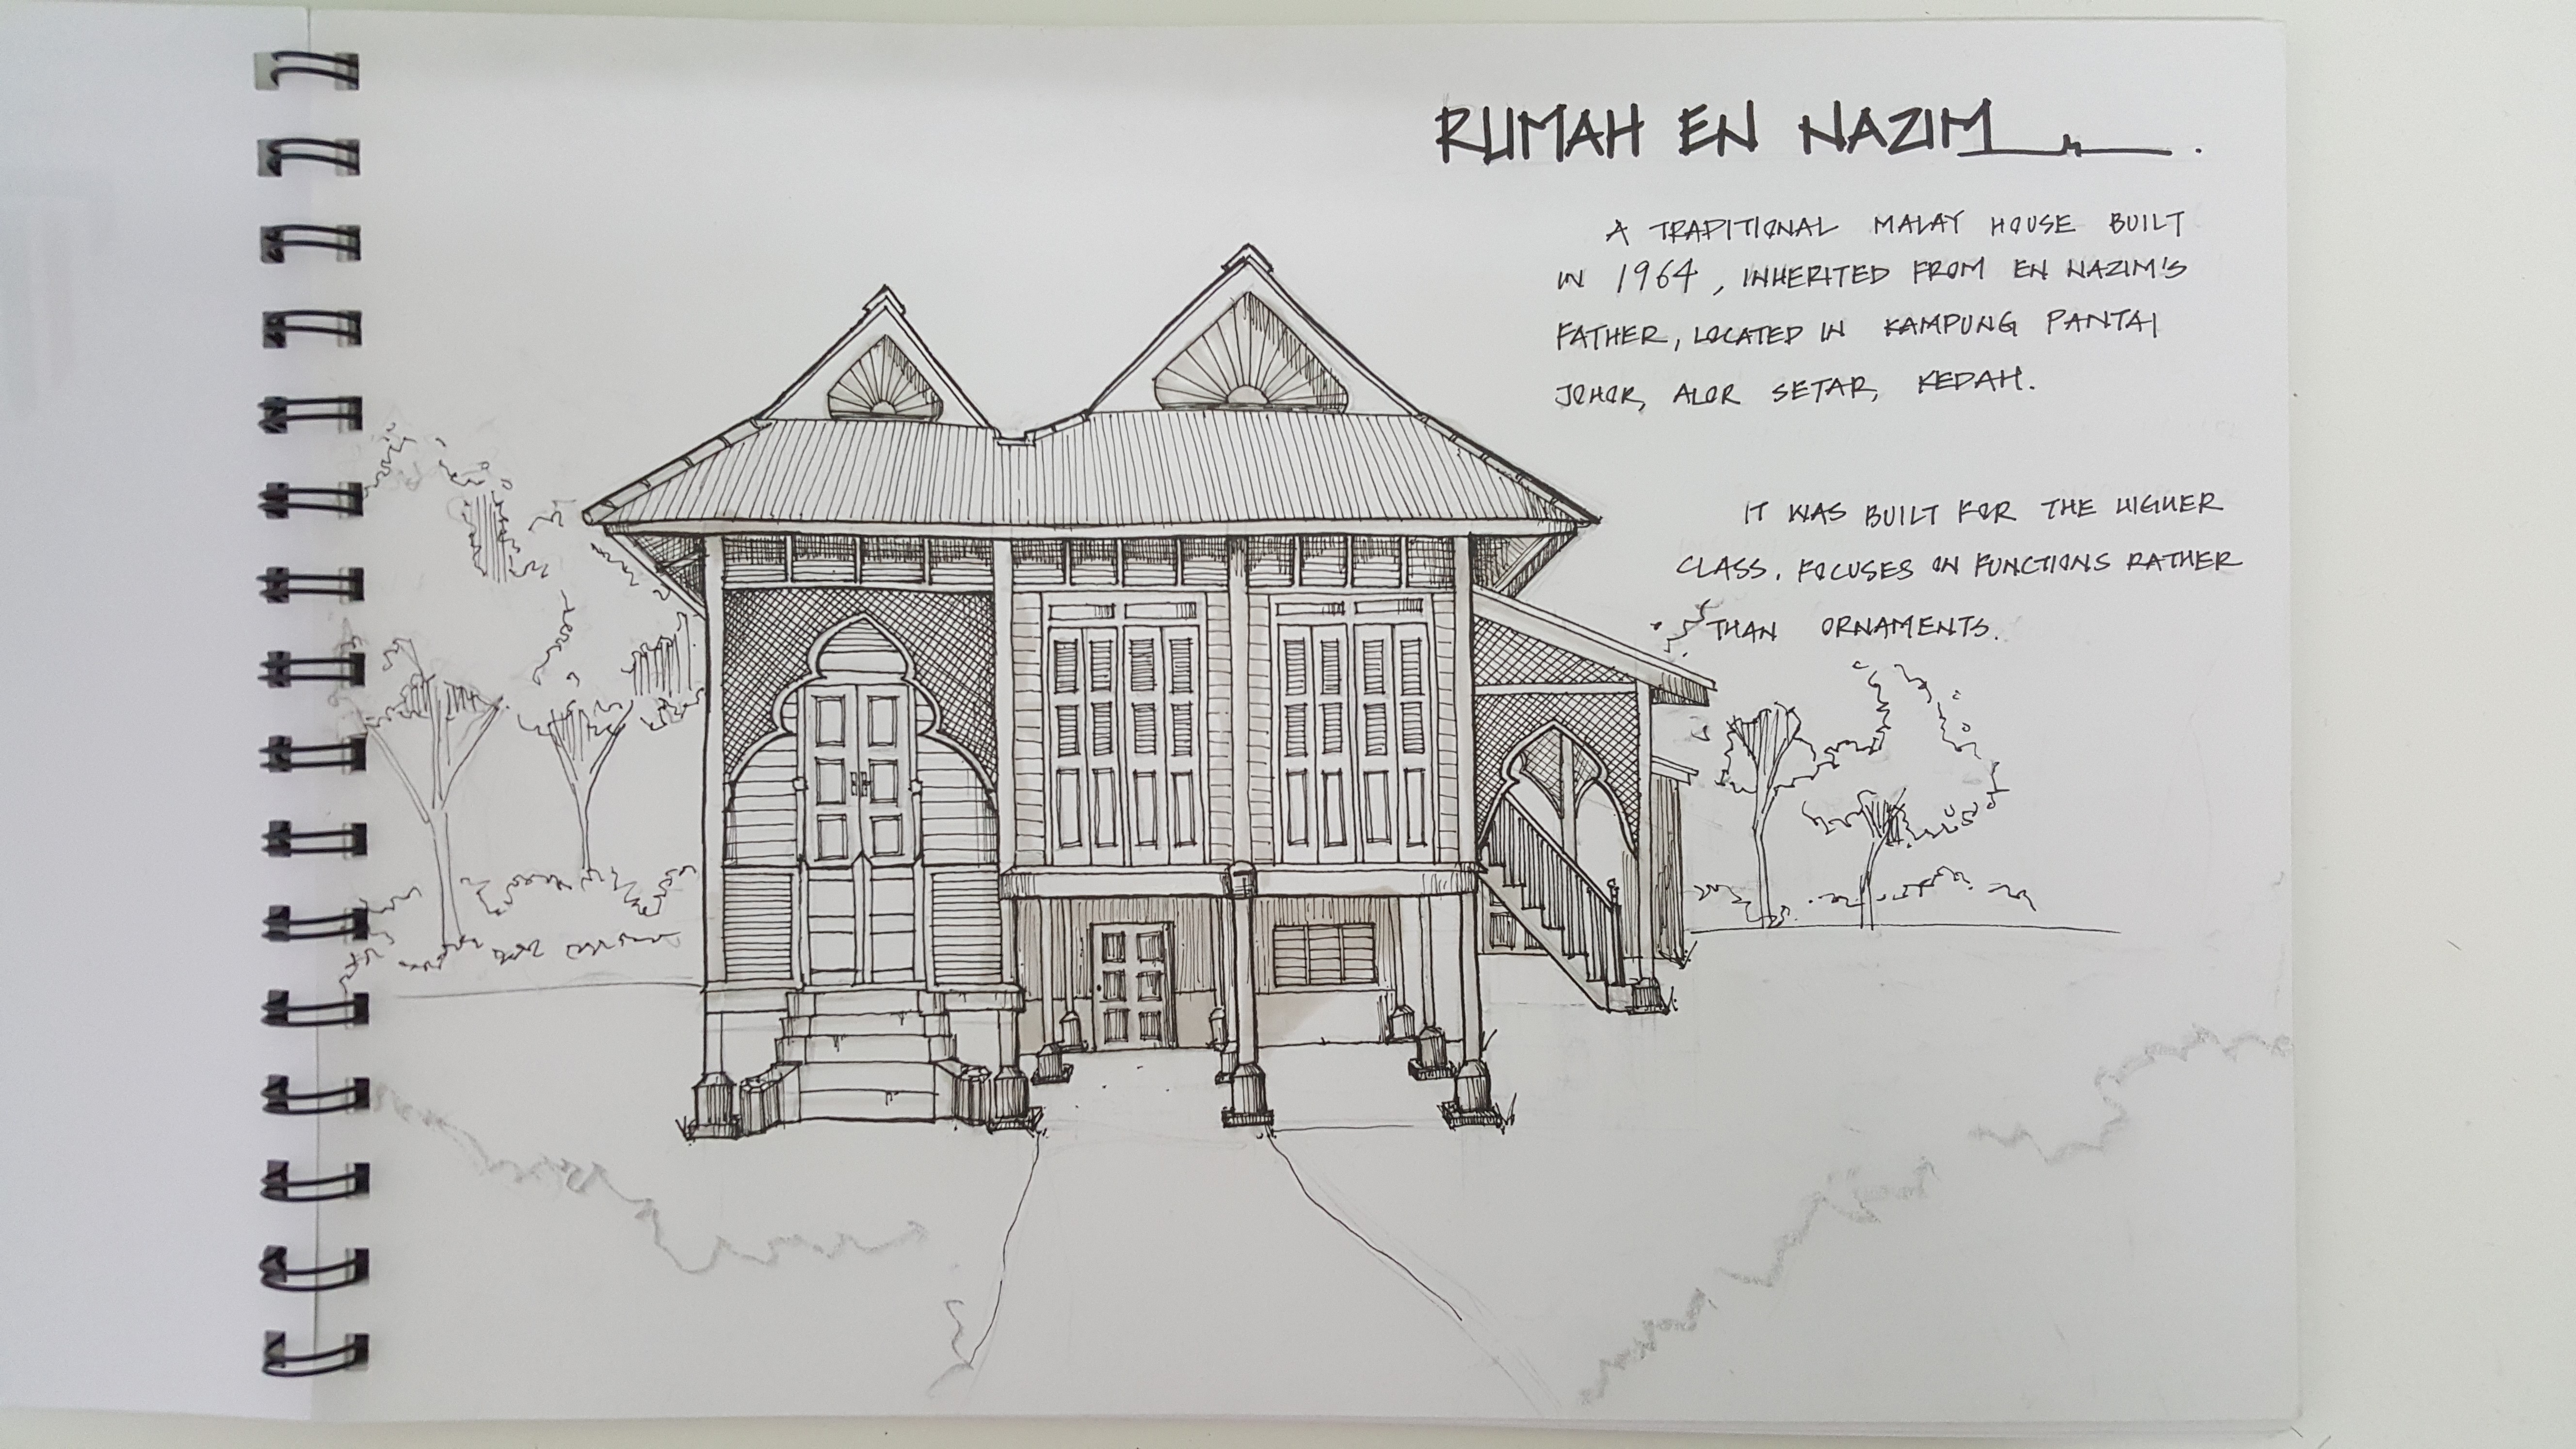 RUMAH EN NAZIM
A TRADITIONAL MALAY HOUSE BUILT
IN 1964, INHERITED FROM EN NAZIM'S
FATHER, LOCATED IN KAMPUNG PANTAI
JOHOR, ALOR SETAR, KEDAH.
IT WAS BUILT FOR THE HIGHER
CLASS. FOCUSES ON FUNCTIONS RATHER
THAN ORNAMENTS.